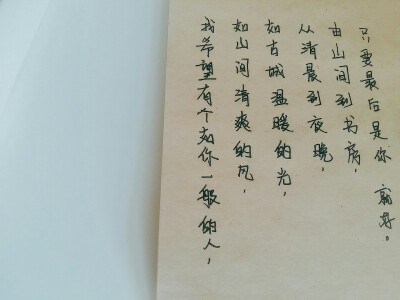 我希望有个如你一般的人，
如山间清爽的风，
如古城温暖的光，
从清晨到夜晚，
由山间到书房，
只要最后是你 就好。